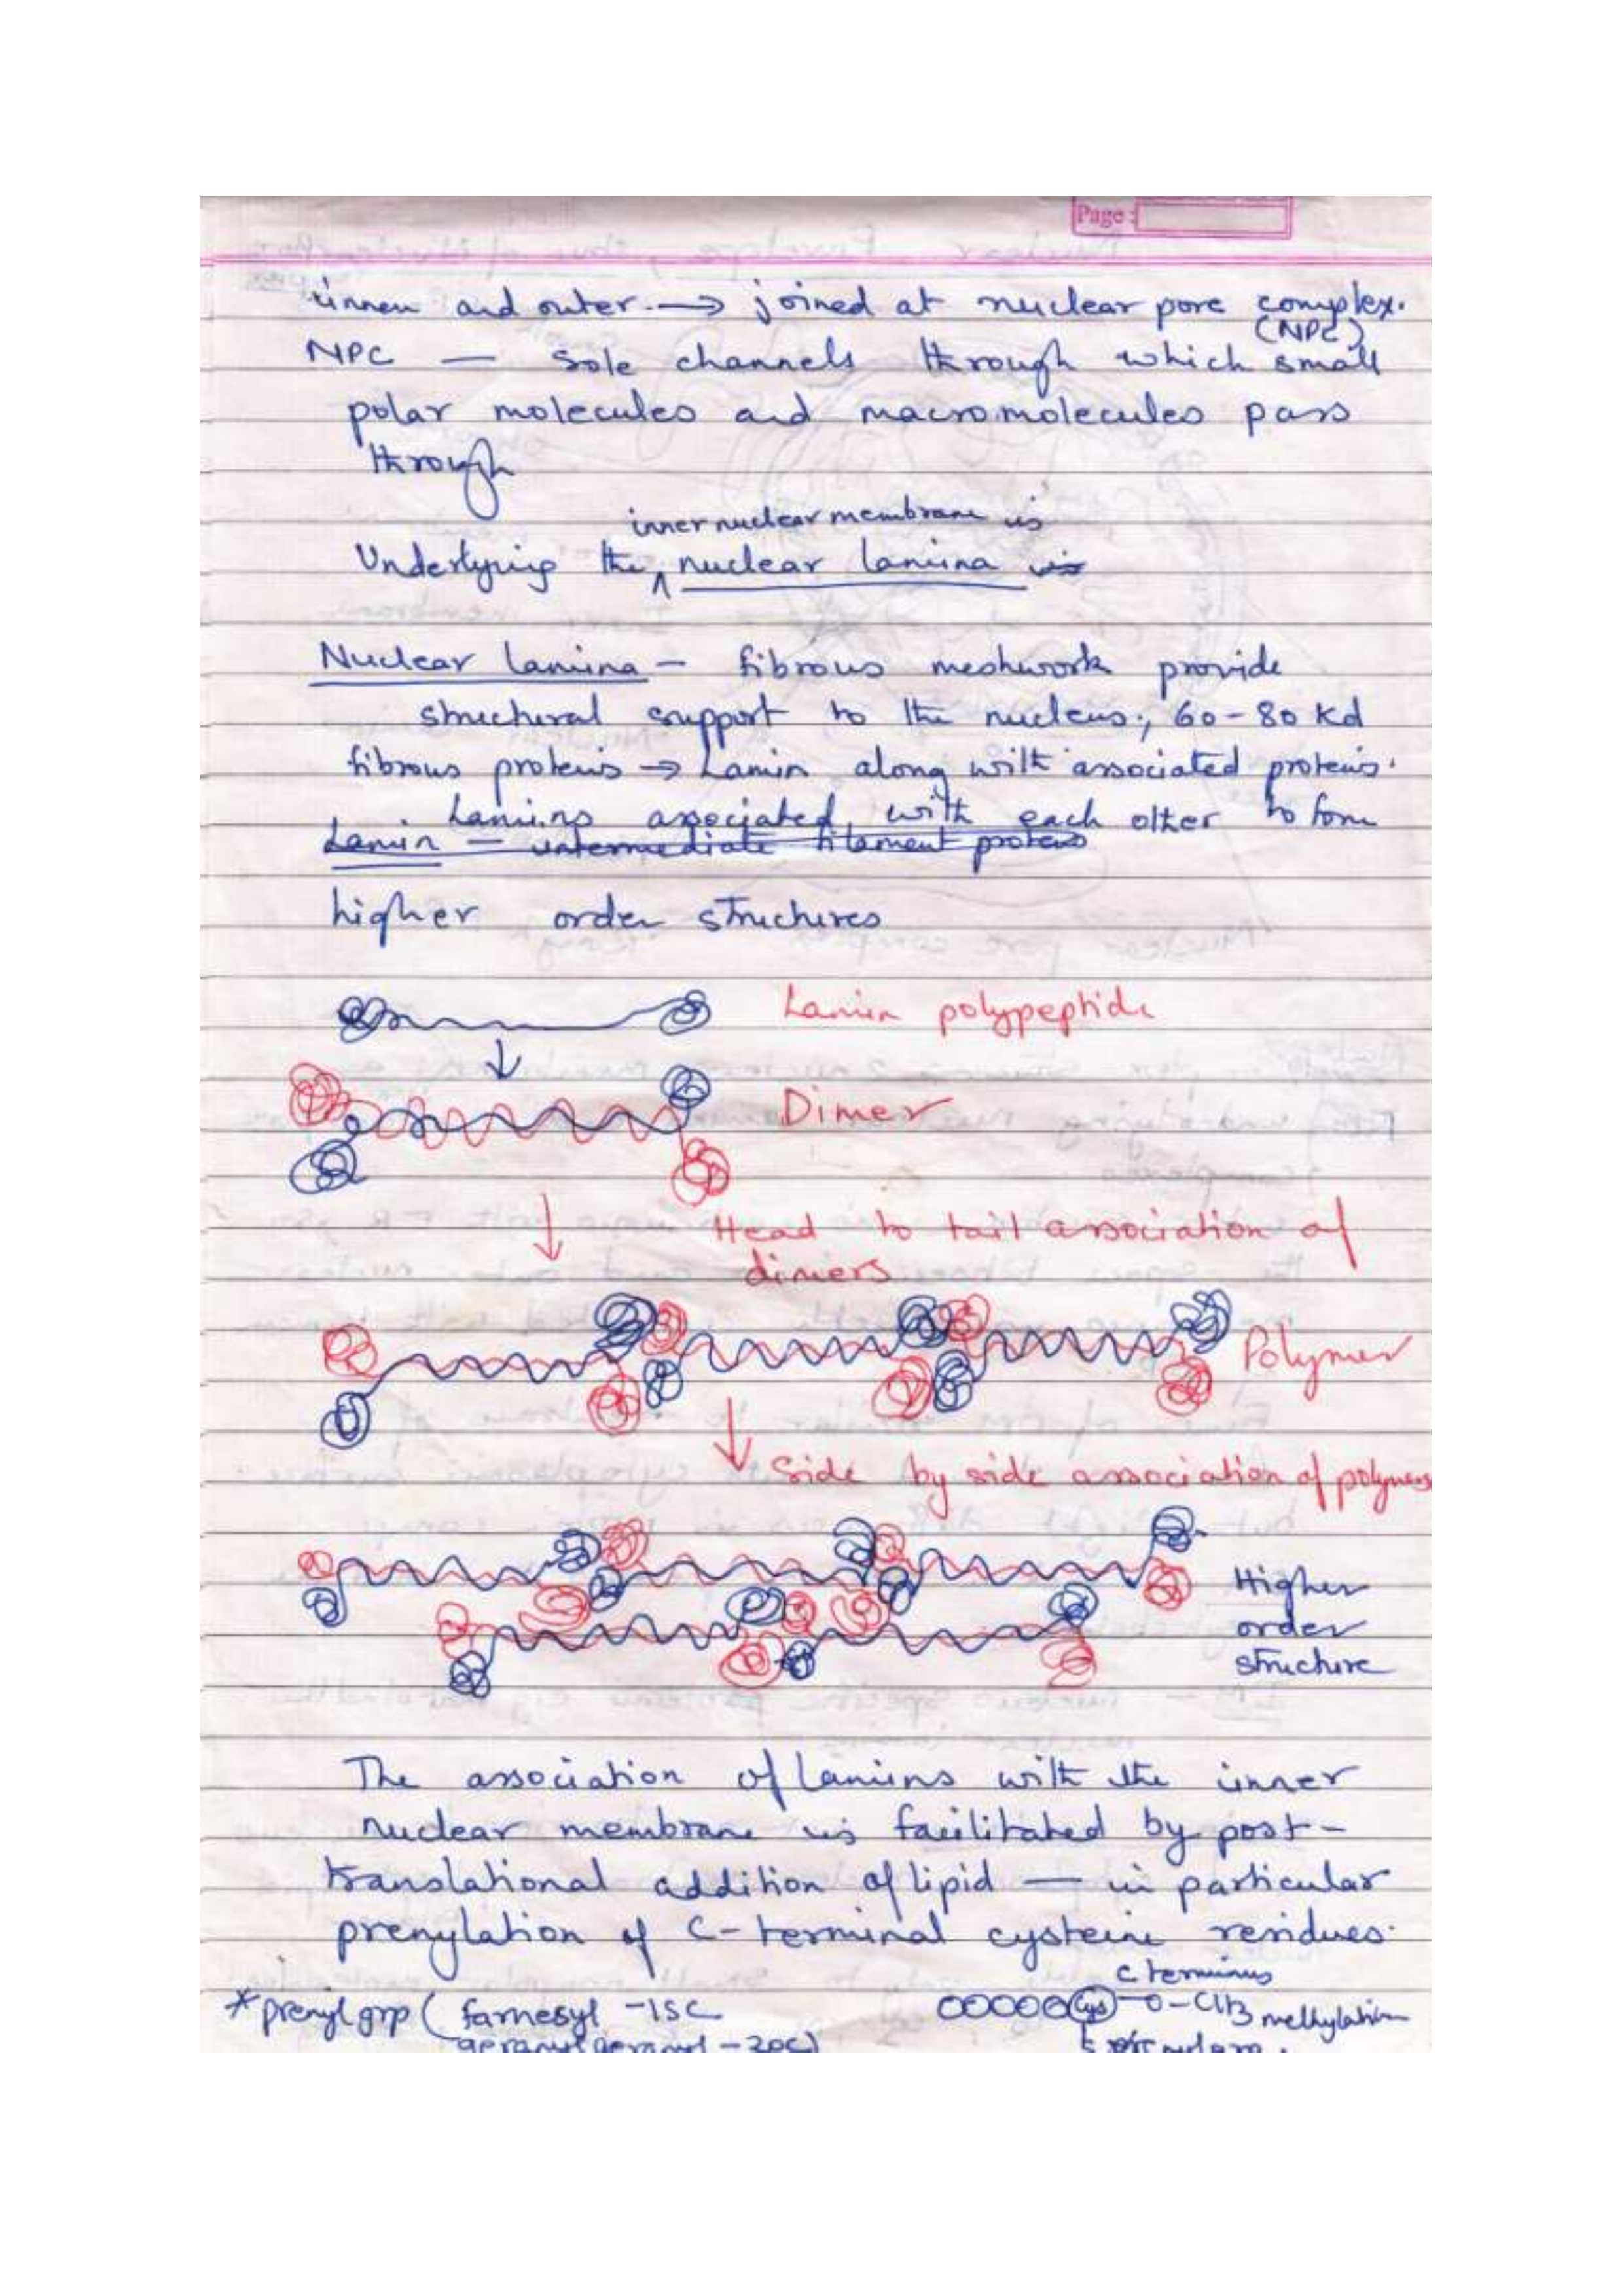 Page :
inner and outer → joined at nuclear pore complex.
(NPC)
NPC — Sole channels through which small
polar molecules and macromolecules pass
through
inner nuclear membrane is
Underlying the ^ nuclear lamina is
Nuclear lamina — fibrous meshwork provide
structural support to the nucleus; 60-80 Kd
fibrous proteins → Lamin along with associated proteins.
Lamins associated with each other to form
Lamin — intermediate filament proteins
higher order structures
Lamin polypeptide
Dimer
Head to tail association of
dimers
Polymer
Side by side association of polymers
Higher
order
structure
The association of lamins with the inner
nuclear membrane is facilitated by post-
translational addition of lipid — in particular
prenylation of C-terminal cysteine residues.
C terminus
* prenyl grp ( farnesyl - 15C
Cys - O - CH3 methylation
geranylgeranyl - 20C)